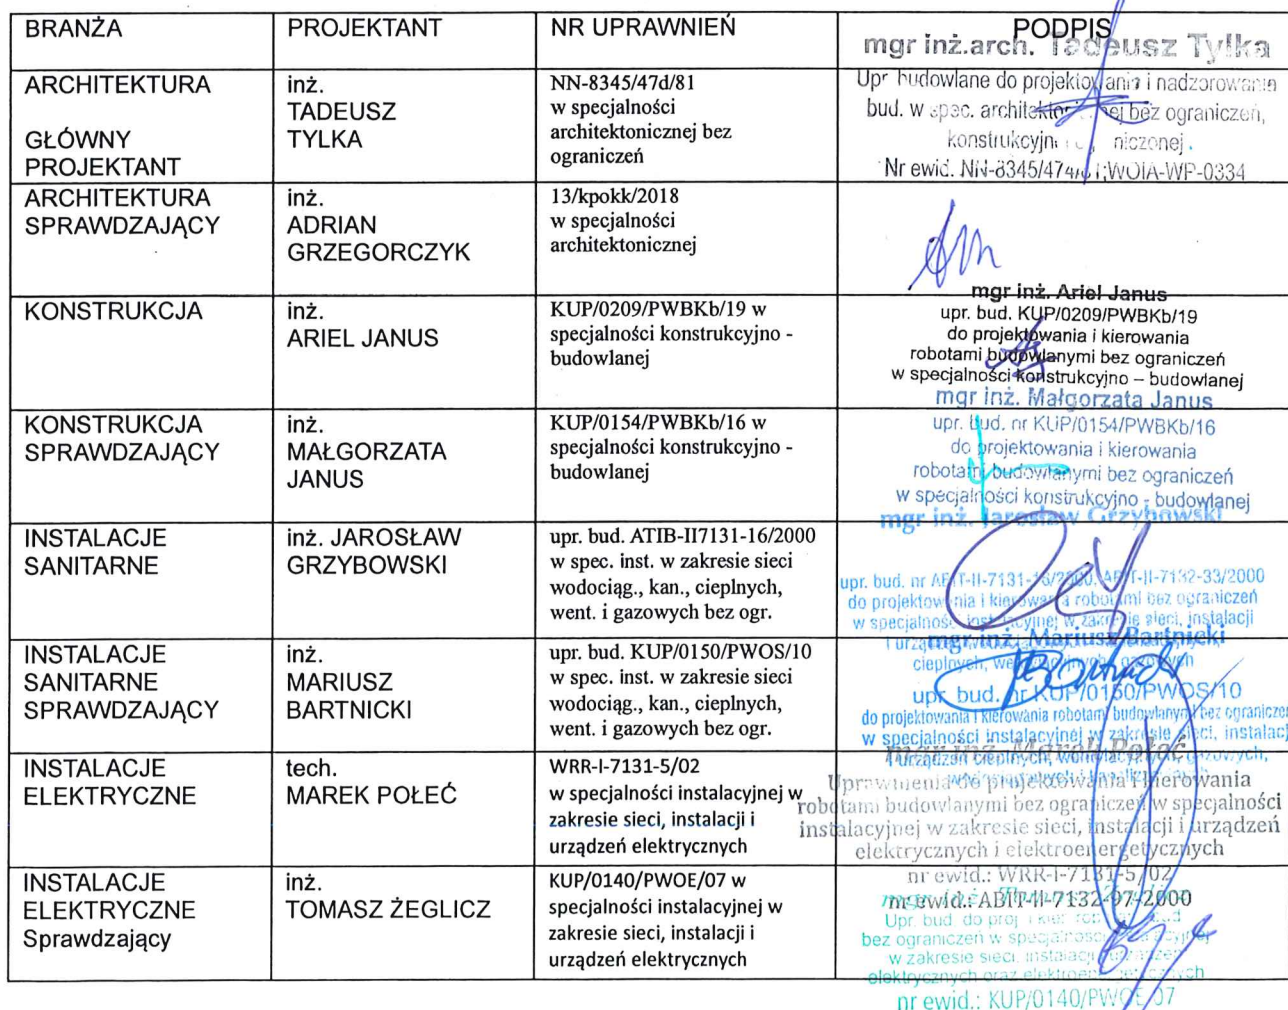 BRANŻA
PROJEKTANT
NR UPRAWNIEŃ
PODPIS
mgr inż.arch. Tadeusz Tylka
ARCHITEKTURA
GŁÓWNY
PROJEKTANT
inż.
TADEUSZ
TYLKA
NN-8345/47d/81
w specjalności
architektonicznej bez
ograniczeń
Upr budowlane do projektowania i nadzorowania
bud. w spec. architektonicznej bez ograniczeń,
konstrukcyjn niczonej.
Nr ewid. NN-8345/474/81;WOIA-WP-0334
ARCHITEKTURA
SPRAWDZAJĄCY
inż.
ADRIAN
GRZEGORCZYK
13/kpokk/2018
w specjalności
architektonicznej
KONSTRUKCJA
inż.
ARIEL JANUS
KUP/0209/PWBKb/19 w
specjalności konstrukcyjno -
budowlanej
mgr inż. Ariel Janus
upr. bud. KUP/0209/PWBKb/19
do projektowania i kierowania
robotami budowlanymi bez ograniczeń
w specjalności konstrukcyjno – budowlanej
KONSTRUKCJA
SPRAWDZAJĄCY
inż.
MAŁGORZATA
JANUS
KUP/0154/PWBKb/16 w
specjalności konstrukcyjno -
budowlanej
mgr inż. Małgorzata Janus
upr. bud. nr KUP/0154/PWBKb/16
do projektowania i kierowania
robotami budowlanymi bez ograniczeń
w specjalności konstrukcyjno - budowlanej
INSTALACJE
SANITARNE
inż. JAROSŁAW
GRZYBOWSKI
upr. bud. ATIB-II7131-16/2000
w spec. inst. w zakresie sieci
wodociąg., kan., cieplnych,
went. i gazowych bez ogr.
mgr inż. Jarosław Grzybowski
upr. bud. nr ABIT-II-7131-16/2000, ABIT-II-7132-33/2000
do projektowania i kierowania robotami bez ograniczeń
w specjalności instalacyjnej w zakresie sieci, instalacji
i urządzeń
cieplnych, wentylacyjnych i gazowych
INSTALACJE
SANITARNE
SPRAWDZAJĄCY
inż.
MARIUSZ
BARTNICKI
upr. bud. KUP/0150/PWOS/10
w spec. inst. w zakresie sieci
wodociąg., kan., cieplnych,
went. i gazowych bez ogr.
mgr inż. Mariusz Bartnicki
upr. bud. nr KUP/0150/PWOS/10
do projektowania i kierowania robotami budowlanymi bez ograniczeń
w specjalności instalacyjnej w zakresie sieci, instalacji
i urządzeń cieplnych, wentylacyjnych, gazowych,
INSTALACJE
ELEKTRYCZNE
tech.
MAREK POŁEĆ
WRR-I-7131-5/02
w specjalności instalacyjnej w
zakresie sieci, instalacji i
urządzeń elektrycznych
mgr inż. Marek Połeć
Uprawnienia do projektowania i kierowania
robotami budowlanymi bez ograniczeń w specjalności
instalacyjnej w zakresie sieci, instalacji i urządzeń
elektrycznych i elektroenergetycznych
nr ewid.: WRR-I-7131-5/02
nr ewid.: ABIT-II-7132-97-2000
INSTALACJE
ELEKTRYCZNE
Sprawdzający
inż.
TOMASZ ŻEGLICZ
KUP/0140/PWOE/07 w
specjalności instalacyjnej w
zakresie sieci, instalacji i
urządzeń elektrycznych
mgr inż.
Upr. bud. do proj. i kier.
bez ograniczeń w specjalności instalacyjnej
w zakresie sieci, instalacji i urządzeń
elektrycznych oraz elektroenergetycznych
nr ewid.: KUP/0140/PWOE/07